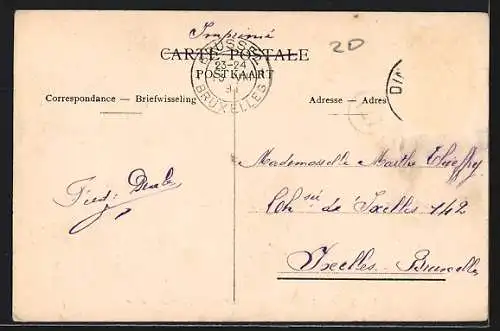 Imprimé
20
CARTE POSTALE
POSTKAART
BRUSSEL
23-24
BRUXELLES
Correspondance — Briefwisseling
Adresse — Adres
Mademoiselle Marthe
Ch sée de Ixelles 142
Ixelles-Bruxelles